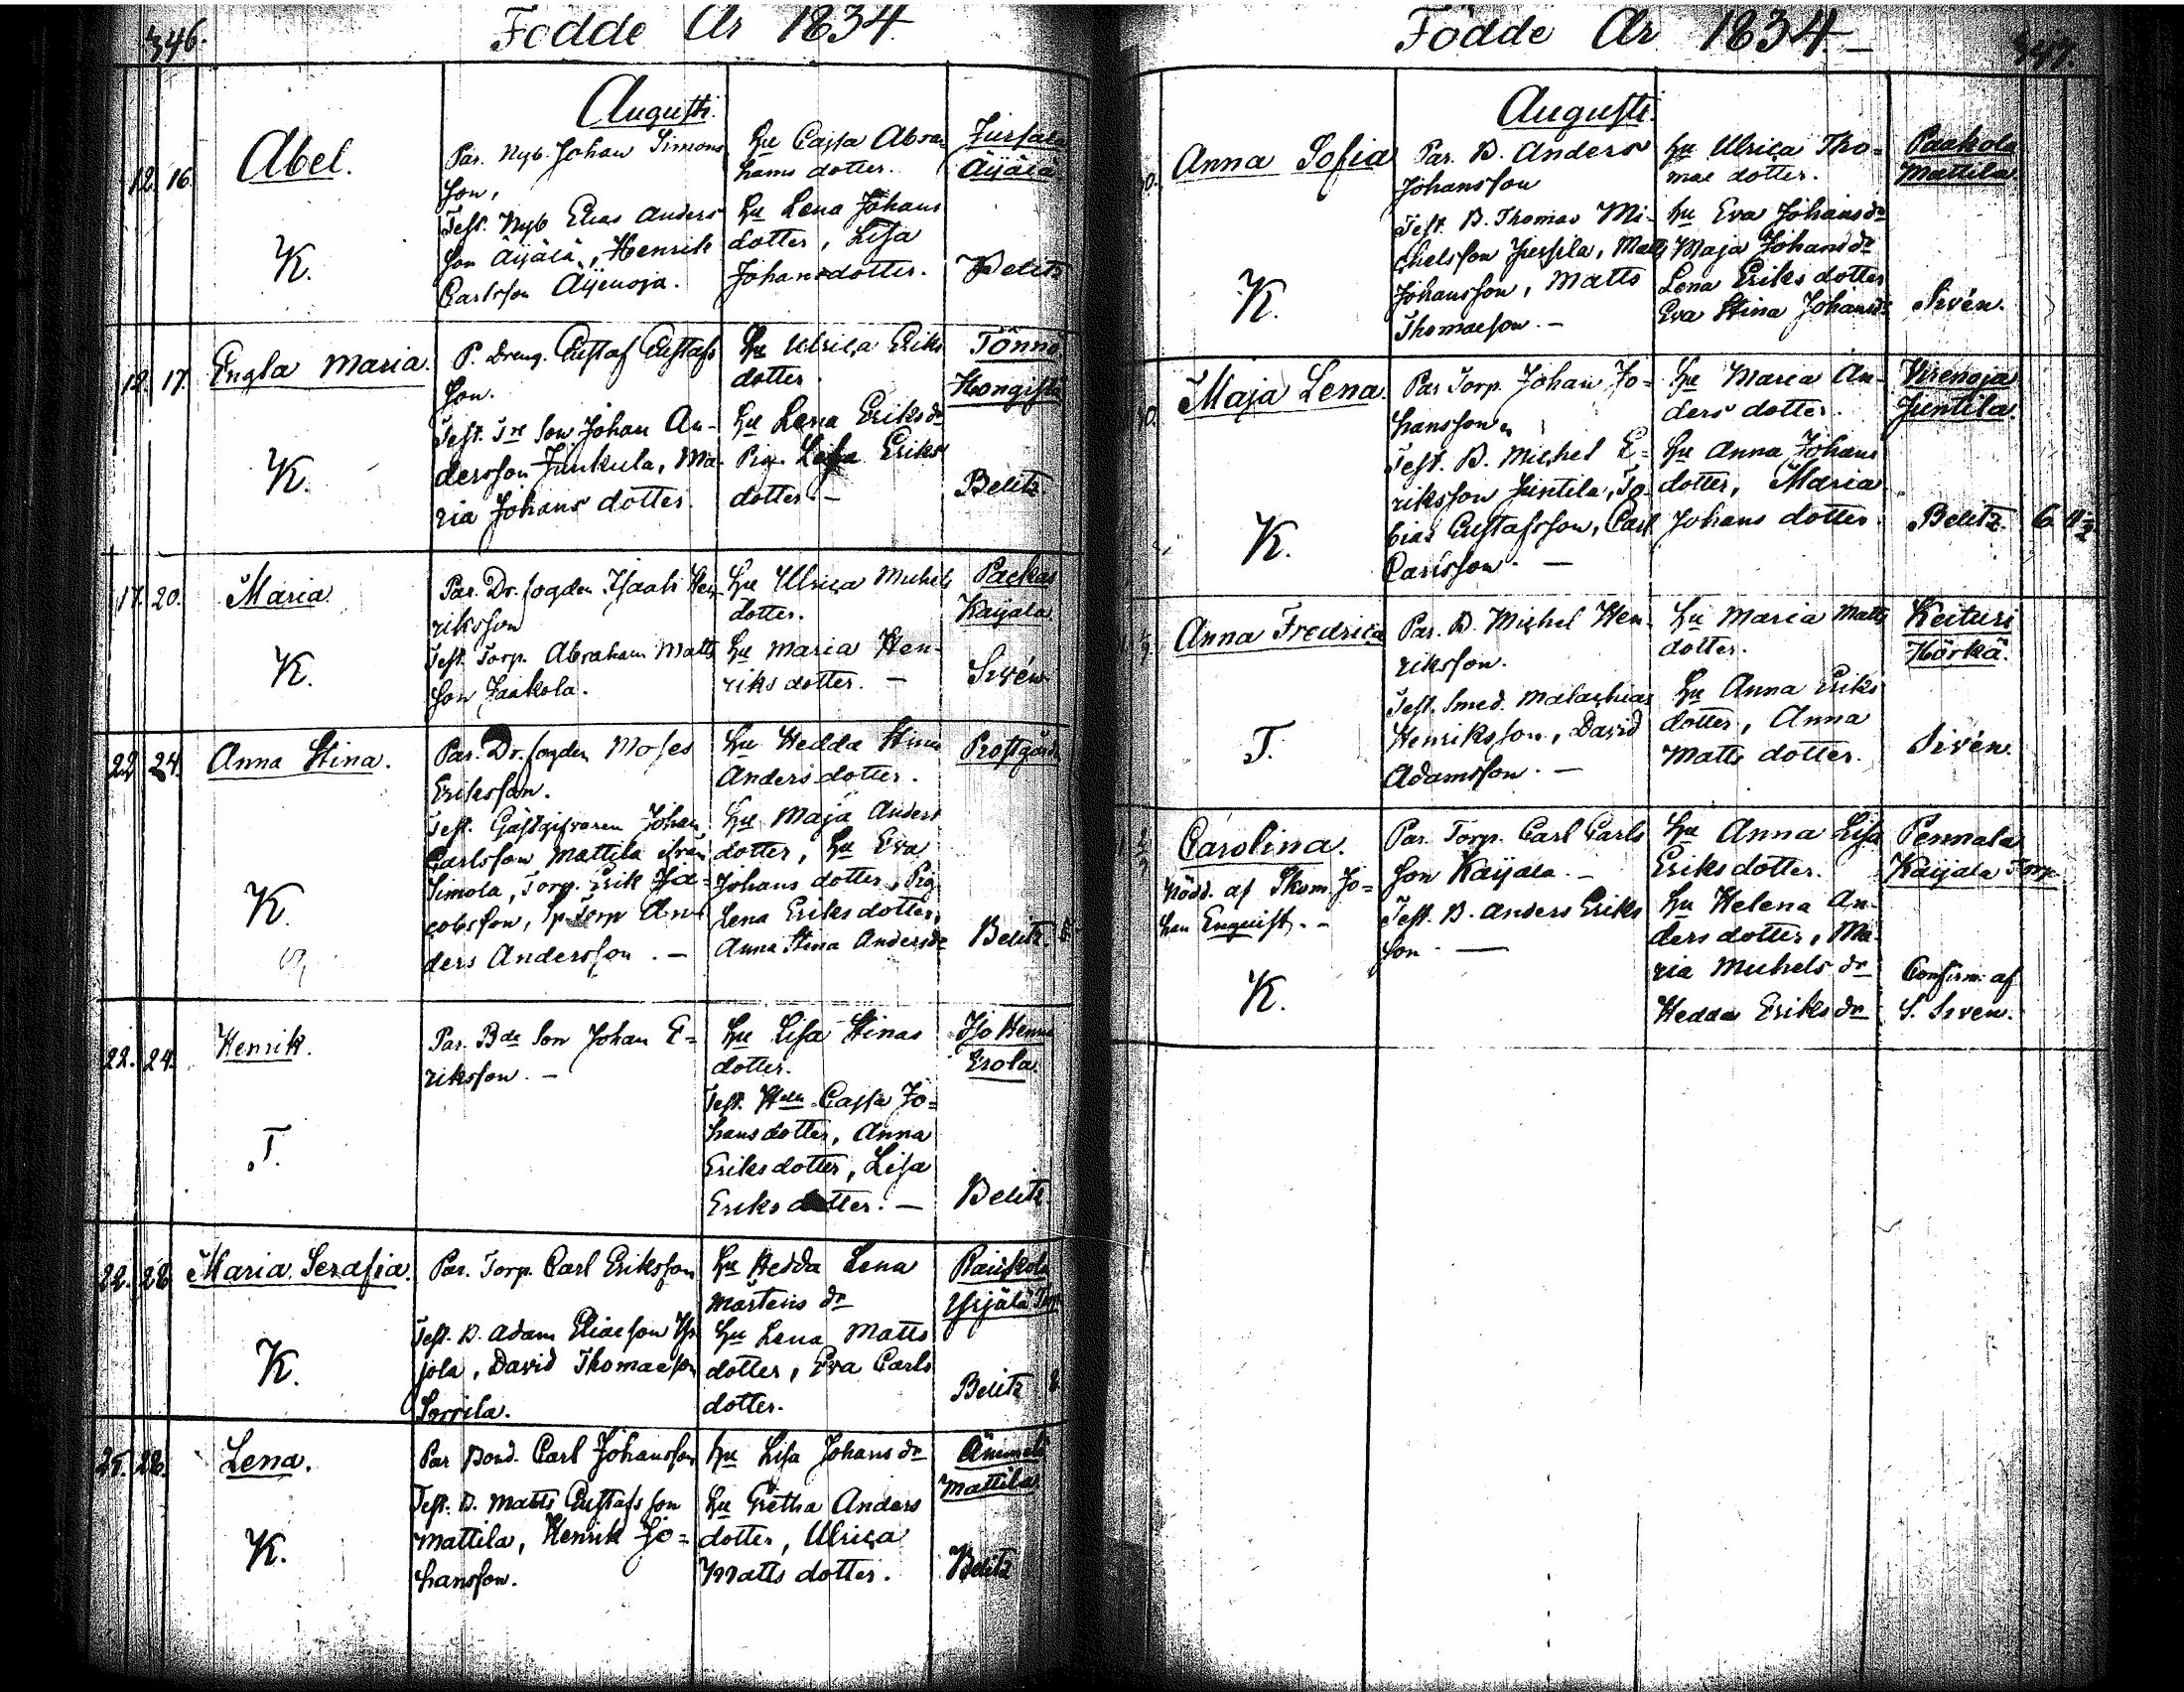 346.
Födde År 1834
Augusti.
12. 16.
Abel.
K.
Par. Nyb. Johan Simons
son,
Test. Nyb Elias Anders
son Äijälä, Henrik
Carlsson Äijenoja.
Hu Cajsa Abra
hams dotter.
Hu Lena Johans
dotter, Lisa
Johansdotter.
Äijälä
Belitz
12. 17.
Engla Maria.
K.
P. Dreng. Gustaf Gustafs
son.
Test. Tre Son Johan An-
dersson Junkula, Ma-
ria Johans dotter.
Hu Ulrica Eriks
dotter.
Hu Lena Eriks dr
Pig. Lisa Eriks
dotter. –
Tönnö
Hongisto
Belitz.
17. 20.
Maria.
K.
Par. Dr. fogden Isaak Hen
riksson
Test. Torp. Abraham Matts
son Jaakola.
Hu Ulrica Michels
dotter.
Hu Maria Hen-
riks dotter. –
Kaijala.
Sirén
22 24.
Anna Stina.
K.
Par. Dr. fogden Moses
Eriksson.
Test. Gästgifvaren Johan
Carlsson Mattila ifrån
Simola, Torp. Erik Ja=
cobsson, Torp An-
ders Andersson. –
Hu Hedda Stina
Anders dotter.
Hu Maja Anders
dotter, Hu Eva
Johans dotter, Pig.
Lena Eriks dotter,
Anna Stina Andersdr
Prostgård
Belitz.
22. 24.
Henrik.
T.
Par. Bde Son Johan E=
riksson. –
Hu Lisa Stinas
dotter.
Test. Cajsa Jo=
hans dotter, Anna
Eriksdotter, Lisa
Eriks dotter. –
Erola.
Belitz.
22. 28
Maria Serafia.
K.
Par. Torp. Carl Eriksson
Test. B. Adam Eliaeson Yr
jola, David Thomaeson
Sorrila.
Hu Hedda Lena
Mårtens dr
Hu Lena Matts
dotter, Eva Carls
dotter.
Räiskola
Yrjälä Torp
Belitz
25. 28.
Lena.
K.
Par Bond. Carl Johansson
Test. B. Matts Gustafs son
Mattila, Henrik Jo=
hansson.
Hu Lisa Johans dr
Hu Gretha Anders
dotter, Ulrica
Matts dotter.
Mattila.
Belitz
Födde År 1834. –
347.
Augusti.
Anna Sofia
K.
Par. B. Anders
Johansson
Test. B. Thomas Mi-
chelsson Jussila, Matts
Johansson, Matts
Thomaeson. –
Hu Ulrica Tho=
mae dotter.
Hu Eva Johans dr
Maja Johans dr
Lena Eriks dotter
Eva Stina Johansdr
Paakola
Mattila.
Sirén.
Maja Lena.
K.
Par Torp. Johan Jo=
hansson
Test. B. Michel E=
riksson Juntila, To-
bias Gustafsson, Carl
Carlsson. –
Hu Maria An-
ders dotter.
Hu Anna Johans
dotter, Maria
Johans dotter.
Virenoja
Juntila.
Belitz.
Anna Fredrica
T.
Par. B. Michel Hen-
riksson.
Test. Smed. Malachias
Henriksson, David
Adamsson. –
Hu Maria Matts
dotter.
Hu Anna Eriks
dotter, Anna
Matts dotter.
Keituri
Hörkä.
Sirén.
Carolina.
nödd. af Skom. Jo=
han Enquist. –
K.
Par. Torp. Carl Carls
son Kaijala. –
Test. B. Anders Eriks
son. —
Hu Anna Lisa
Eriks dotter.
Hu Helena An-
ders dotter, Ma-
ria Michels dr
Hedda Eriks dr
Pennala
Kaijala Torp
Confirm. af
S. Sirén.